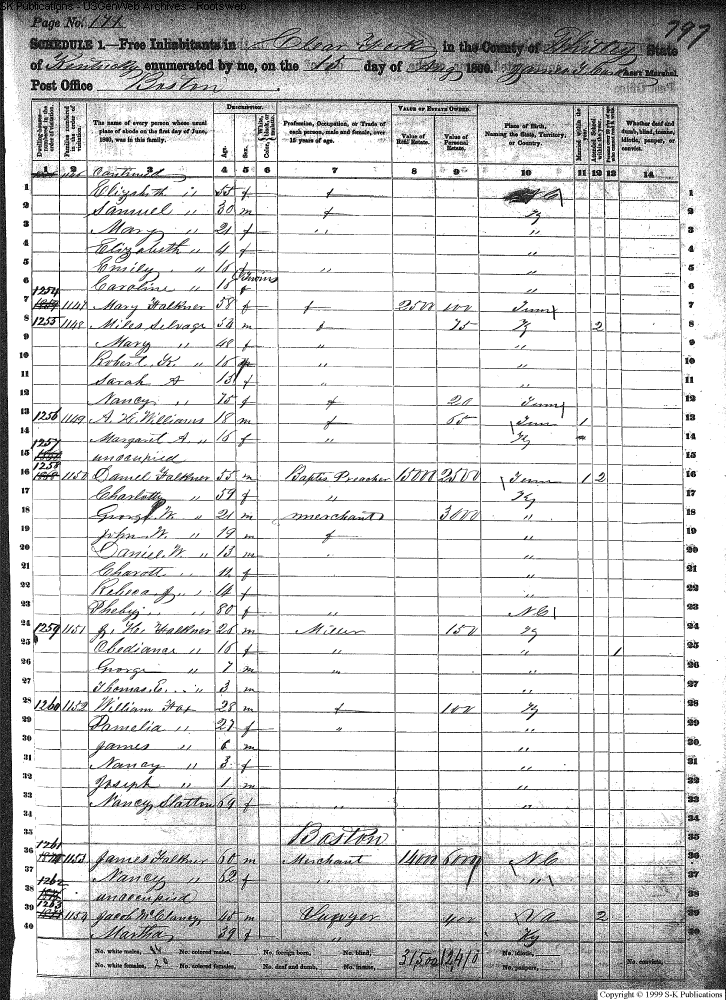 S-K Publications - USGenWeb Archives - Rootsweb
Page No. 171
797
SCHEDULE 1.—Free Inhabitants in Clear Fork in the County of Whitley State
of Kentucky enumerated by me, on the day of 1860.
Post Office Boston
DESCRIPTION. VALUE OF ESTATE OWNED.
Dwelling-houses numbered in the order of visitation.
Families numbered in the order of visitation.
The name of every person whose usual place of abode on the first day of June, 1860, was in this family.
Age.
Sex.
Color, White, black, or mulatto.
Profession, Occupation, or Trade of each person, male and female, over 15 years of age.
Value of Real Estate.
Value of Personal Estate.
Place of Birth, Naming the State, Territory, or Country.
Married within the year.
Attended School within the year.
Whether deaf and dumb, blind, insane, idiotic, pauper, or convict.
1 2 3 4 5 6 7 8 9 10 11 12 13 14
Continued
1 Elizabeth " 55 f N C 1
2 Samuel " 30 m Ky 2
3 Mary " 21 f " " 3
4 Elizabeth " 4 f " 4
5 Emily " 16 f Twins " " 5
6 Caroline " 16 f " 6
7 1254 1147 Mary Falkner 58 f 2500 100 Tenn 7
8 1255 1148 Miles Selvage 54 m 75 Ky 2 8
9 Mary " 48 f " " 9
10 Robert K. " 16 " 10
11 Sarah A 13 f " " 11
12 Nancy " 75 f 20 Tenn 12
13 1256 1149 A. H. Williams 18 m 65 Tenn 1 13
14 Margaret A " 16 f " Ky 14
15 1257 unoccupied 15
16 1258 1150 Daniel Falkner 55 m Baptis Preacher 1500 2500 Tenn 1 2 16
17 Charlotty " 59 f " Ky 17
18 George W. " 21 m merchant 3000 " 18
19 John W. " 19 m " 19
20 Daniel W. " 13 m " 20
21 Charott " 12 f " 21
22 Rebeca J. " 14 f " 22
23 Pheby " 80 f " N C 23
24 1259 1151 J. H. Falkner 26 m Miller 150 Ky 24
25 Obedianar " 16 f " " 1 25
26 George " 7 m " " 26
27 Thomas E. " 3 m " 27
28 1260 1152 William Fox 28 m 100 Ky 28
29 Pamelia " 27 f " " 29
30 James " 6 m " 30
31 Nancy " 3 f " 31
32 Joseph " 1 m " 32
33 Nancy 69 f " " 33
34 34
35 Boston 35
36 1261 1153 James Falkner 60 m Merchant 1400 6000 N.C 36
37 Nancy " 62 f " " 37
38 1262 unoccupied 38
39 1263 1154 Jacob McClaney 45 m Lawyer 400 VA 2 39
40 Martha " 39 f " Ky 40
No. white males, 16 No. colored males, No. foreign born, No. blind, 31500 12410 No. idiotic,
No. white females, 20 No. colored females, No. deaf and dumb, No. insane, No. paupers, No. convicts,
Copyright © 1999 S-K Publications